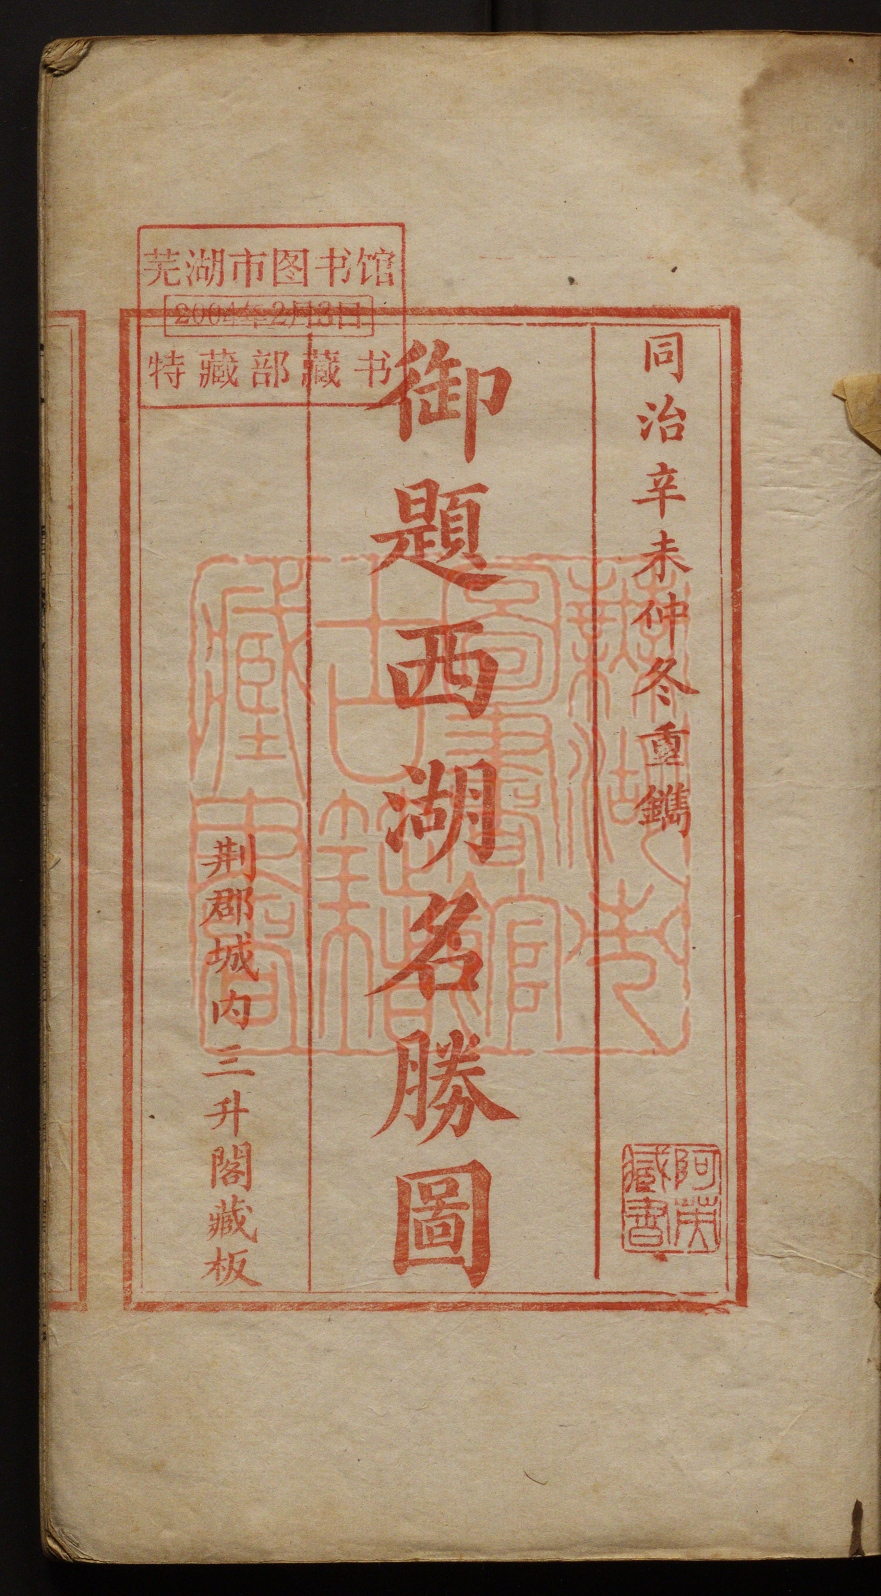 同治辛未仲冬重鐫
御題西湖名勝圖
荆郡城内三升閣藏板
芜湖市图书馆
2004年2月3日
特藏部藏书
蕪湖市
圖書館
古籍
藏書
藏書